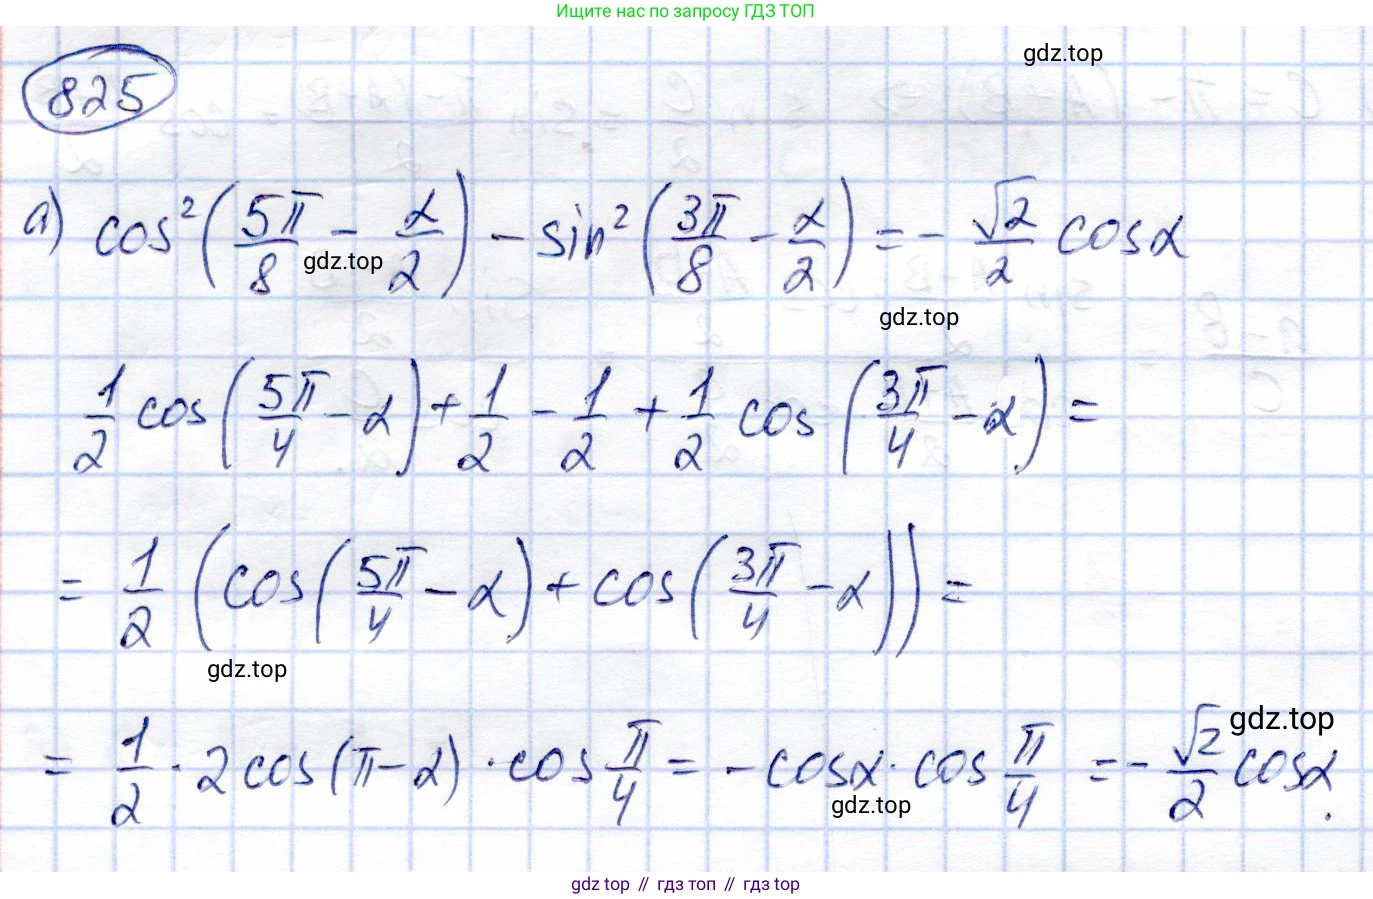 Ищите нас по запросу ГДЗ ТОП
gdz.top
825
а) cos²(5π/8 - α/2) - sin²(3π/8 - α/2) = - √2/2 cosα
gdz.top
gdz.top
1/2 cos(5π/4 - α) + 1/2 - 1/2 + 1/2 cos(3π/4 - α) =
= 1/2 (cos(5π/4 - α) + cos(3π/4 - α)) =
gdz.top
= 1/2 · 2cos(π - α) · cos π/4 = - cosα · cos π/4 = - √2/2 cosα.
gdz.top
gdz.top
gdz top // гдз топ // gdz top